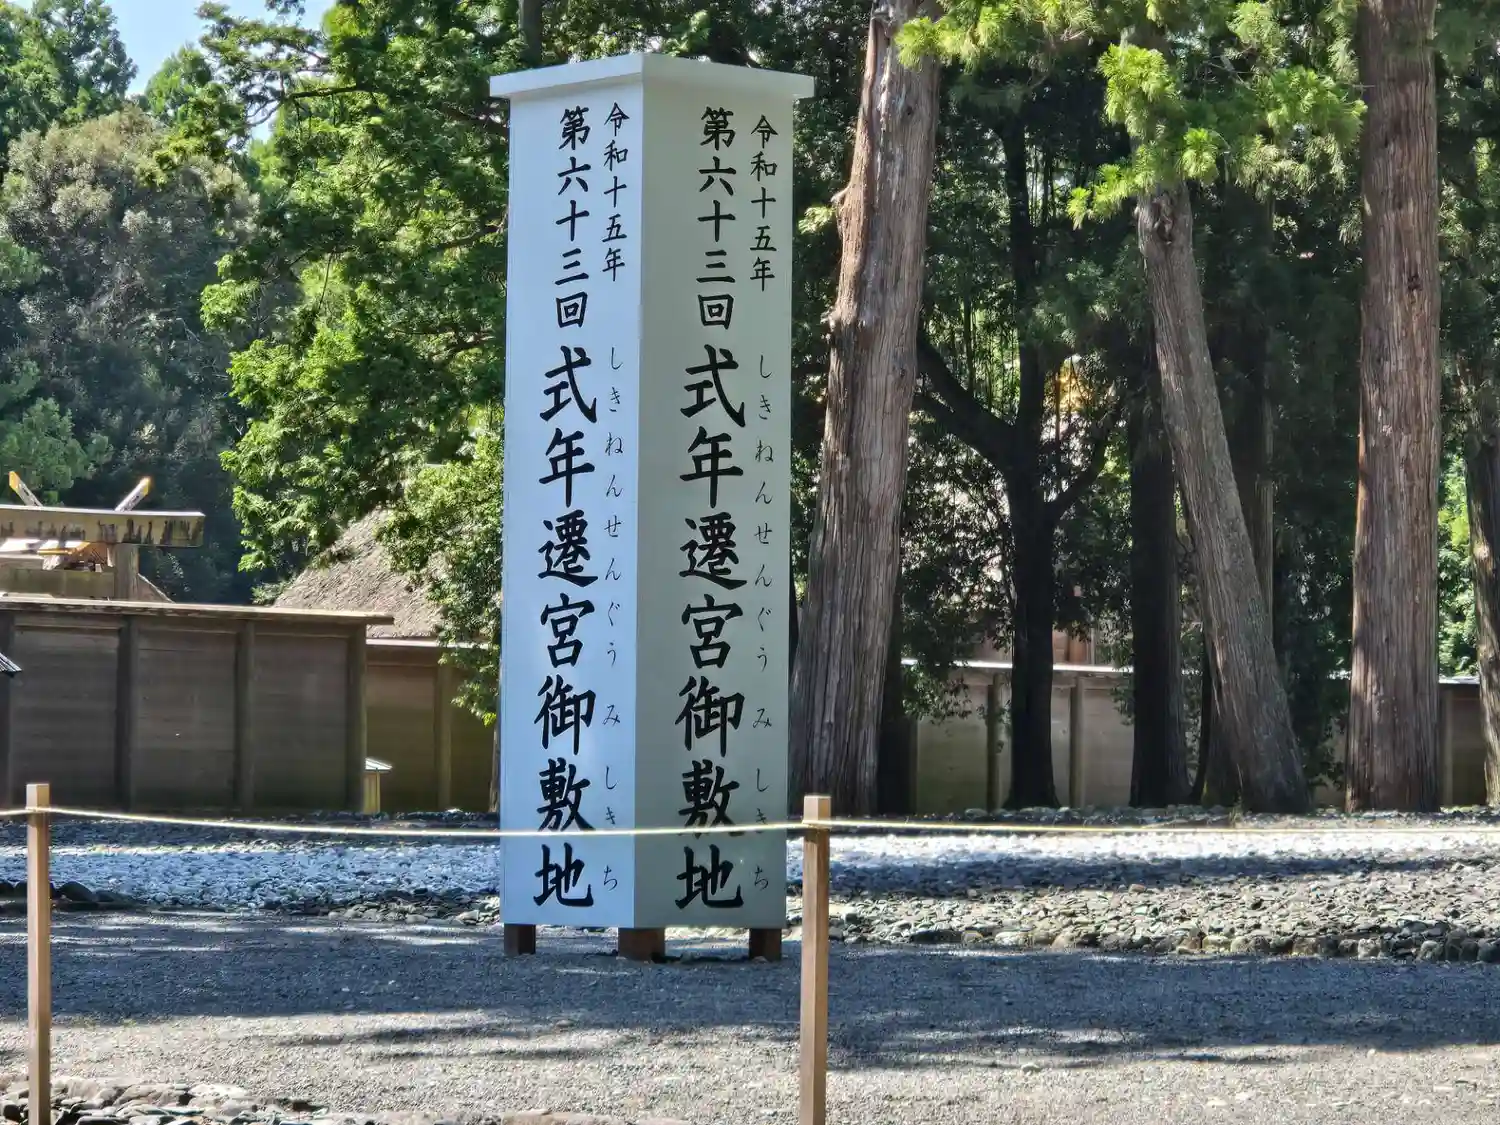 令和十五年
第六十三回
しきねんせんぐう みしきち
式年遷宮御敷地
令和十五年
第六十三回
しきねんせんぐう みしきち
式年遷宮御敷地